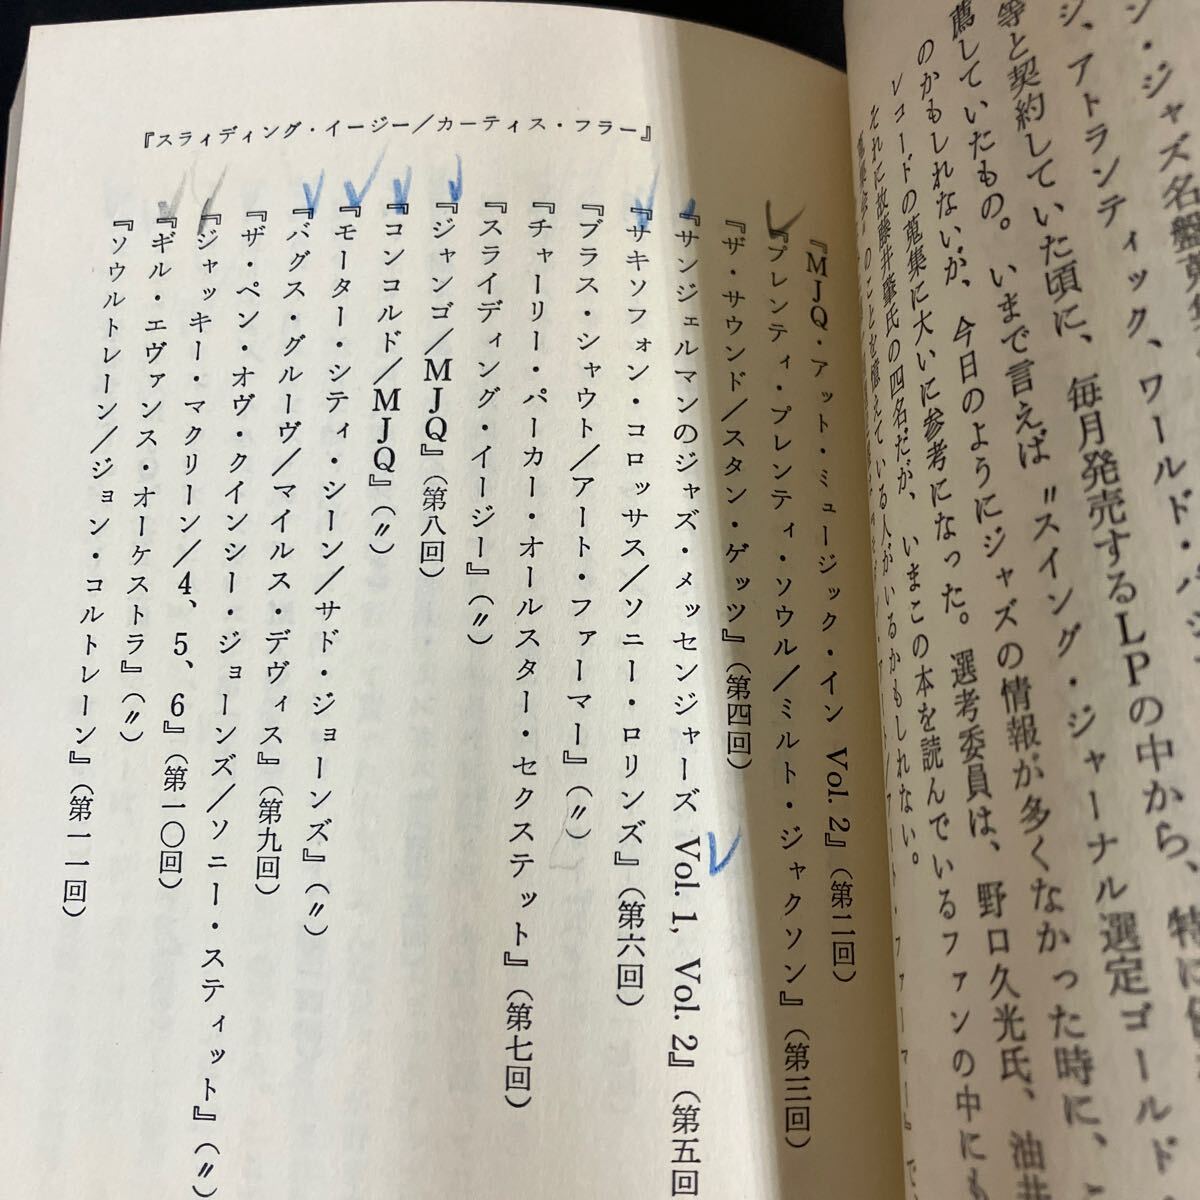 ン・ジャズ名盤
ジ、アトランティック、ワールド・パシ
等と契約していた頃に、毎月発売するLPの中から、特に
薦していたもの。いまで言えば〝スイング・ジャーナル選定ゴールド・
のかもしれないが、今日のようにジャズの情報が多くなかった時に、
レコードの蒐集に大いに参考になった。選考委員は、野口久光氏、油井
それに故藤井肇氏の四名だが、いまこの本を読んでいるファンの中にも
のことを憶えている人がいるかもしれない。
『MJQ・アット・ミュージック・イン Vol. 2』(第二回)
『プレンティ・プレンティ・ソウル/ミルト・ジャクソン』(第三回)
『ザ・サウンド/スタン・ゲッツ』(第四回)
『サンジェルマンのジャズ・メッセンジャーズ Vol. 1, Vol. 2』(第五回
『サキソフォン・コロッサス/ソニー・ロリンズ』(第六回)
『ブラス・シャウト/アート・ファーマー』(〃)
『チャーリー・パーカー・オールスター・セクステット』(第七回)
『スライディング・イージー』(〃)
『ジャンゴ/MJQ』(第八回)
『コンコルド/MJQ』(〃)
『モーター・シティ・シーン/サド・ジョーンズ』(〃)
『バグス・グルーヴ/マイルス・デヴィス』(第九回)
『ザ・ペン・オヴ・クインシー・ジョーンズ/ソニー・スティット』(〃)
『ジャッキー・マクリーン/4、5、6』(第一〇回)
『ギル・エヴァンス・オーケストラ』(〃)
『ソウルトレーン/ジョン・コルトレーン』(第一一回)
『スライディング・イージー/カーティス・フラー』